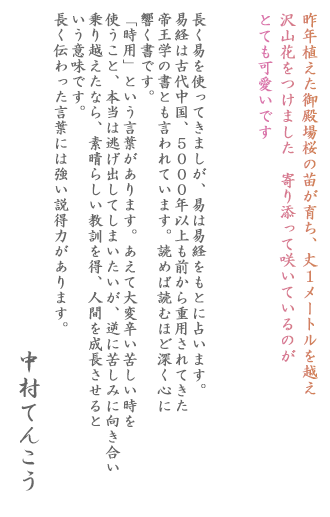 昨年植えた御殿場桜の苗が育ち、丈1メートルを越え
沢山花をつけました　寄り添って咲いているのが
とても可愛いです
長く易を使ってきましが、易は易経をもとに占います。
易経は古代中国、5000年以上も前から重用されてきた
帝王学の書とも言われています。読めば読むほど深く心に
響く書です。
「時用」という言葉があります。あえて大変辛い苦しい時を
使うこと、本当は逃げ出してしまいたいが、逆に苦しみに向き合い
乗り越えたなら、素晴らしい教訓を得、人間を成長させると
いう意味です。
長く伝わった言葉には強い説得力があります。
中村てんこう